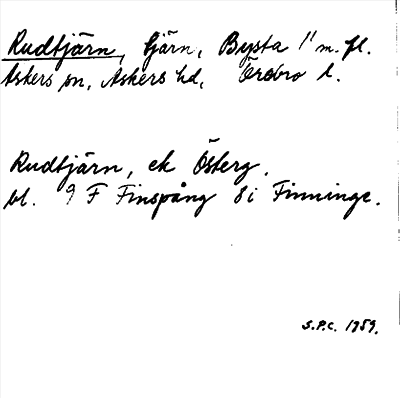 Rudtjärn, tjärn, Bysta 1¹¹ m. fl.
Askers sn, Askers hd, Örebro l.
Rudtjärn, ek Österg.
bl. 9 F Finspång 8i Finninge.
S.P.C. 1959.